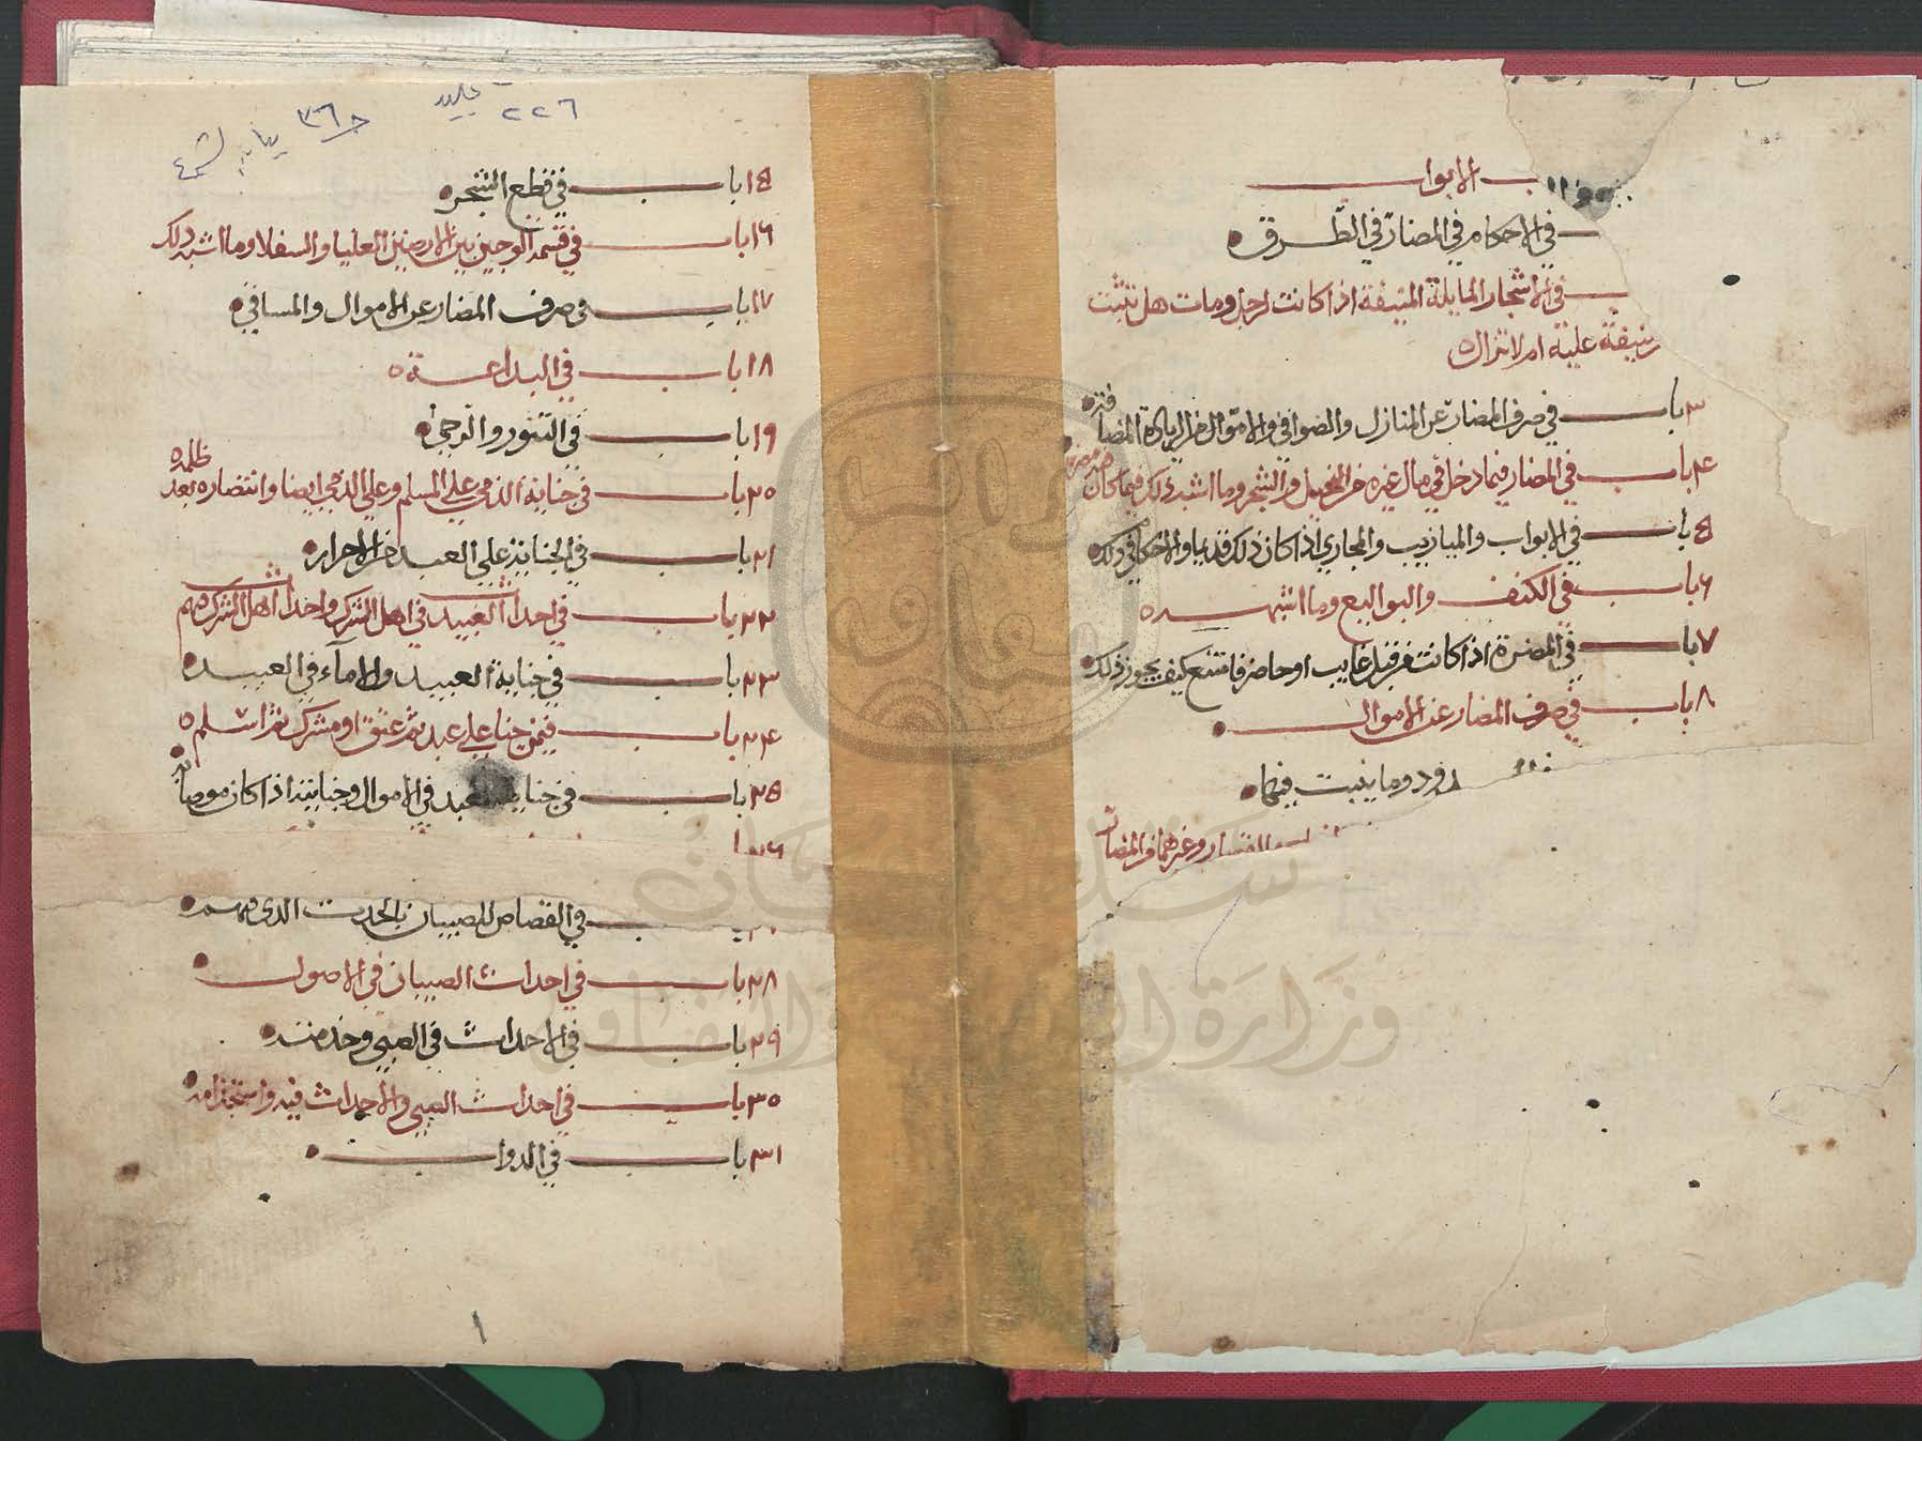 الابواب
في الاحكام في المضار في الطرق
في الاشجار المايلة المنيفة اذا كانت لرجل ومات هل تثبت
منيفة عليه ام لا تزال
٣ باب في صرف المضار عن المنازل والصوافي والاموال من الزيادة المضافة
٤ باب في المضار فيما دخل في مال غيره من النخيل والشجر وما اشبه ذلك فيما كان
٥ باب في الابواب والميازيب والمجاري اذا كان ذلك قديما والاحكام في ذلك
٦ باب في الكنف والبواليع وما اشبهه
٧ باب في المضرة اذا كانت من قبل غايب او حاضر فامتنع كيف يجوز ذلك
٨ باب في صرف المضار عن الاموال
وما ينبت فيها
وغيرهما من المضار
٢٢٦
ج ٣٦ بيان الشرع
١٥ باب في قطع الشجر
١٦ باب في قسمة الوجين بين الارضين العليا والسفلا وما اشبه ذلك
١٧ باب في صرف المضار عن الاموال والمساقي
١٨ باب في البداعة
١٩ باب في التنور والرحى
٢٠ باب في جناية الذمي على المسلم وعلى الذمي ايضا وانتصاره بعد ظلمه
٢١ باب في الجناية على العبيد من الاحرار
٢٢ باب في احداث العبيد في اهل الشرك واحداث اهل الشرك فيهم
٢٣ باب في جناية العبيد والامآء في العبيد
٢٤ باب فيمن جنا على عبد ثم عتق او مشرك ثم اسلم
٢٥ باب في جناية العبد في الاموال وجنايته اذا كان موصا به
٢٦
في القصاص للصبيان بالحدث الذي فيهم
٢٨ باب في احداث الصبيان في الاصول
٢٩ باب في الاحداث في الصبي وخدمته
٣٠ باب في احداث الصبي والاحداث فيه واستخدامه
٣١ باب في الدواب
١
وزارة التراث والثقافة
سلطنة عمان